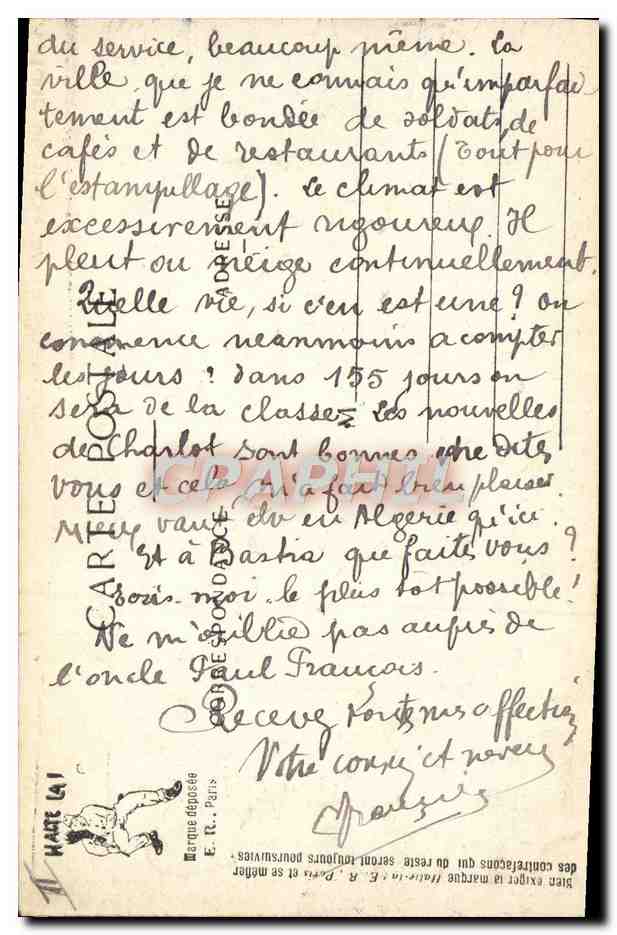 du service, beaucoup même. La
ville que je ne connais qu'imparfai
tement est bondée de soldats, de
cafés et de restaurants (Tout pour
l'estampillage). Le climat est
excessivement rigoureux. Il
pleut ou neige continuellement.
Quelle vie, si c'en est une? On
commence neanmoins a compter
les jours: dans 155 jours on
sera de la classe. Les nouvelles
de Charlot sont bonnes me dites
vous et cela m'a fait bien plaisir.
Mieux vaut être en Algerie qu'ici.
Et à Bastia que faites vous?
Ecris-moi le plus tôt possible!
Ne m'oublie pas auprès de
l'oncle Paul François.
Recevez toutes mes affections
Votre cousin et neveu
François
CARTE POSTALE
CORRESPONDANCE
ADRESSE
HALTE LA!
Marque déposée
E. R., Paris
Bien exiger la marque Halte-là! E. R., Paris et se méfier
des contrefaçons qui du reste seront toujours poursuivies.
II
CPAPHIL